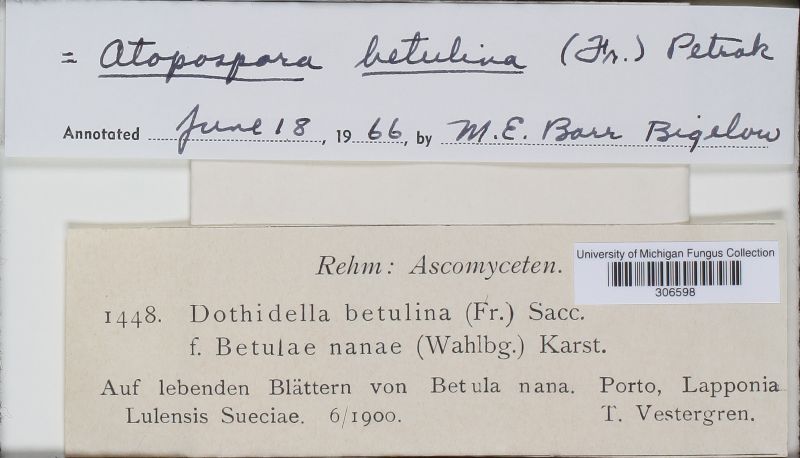 = Atopospora betulina (Fr.) Petrak
Annotated June 18, 1966, by M.E. Barr Bigelow
Rehm: Ascomyceten.
University of Michigan Fungus Collection
306598
1448. Dothidella betulina (Fr.) Sacc.
f. Betulae nanae (Wahlbg.) Karst.
Auf lebenden Blättern von Betula nana. Porto, Lapponia
Lulensis Sueciae. 6/1900. T. Vestergren.